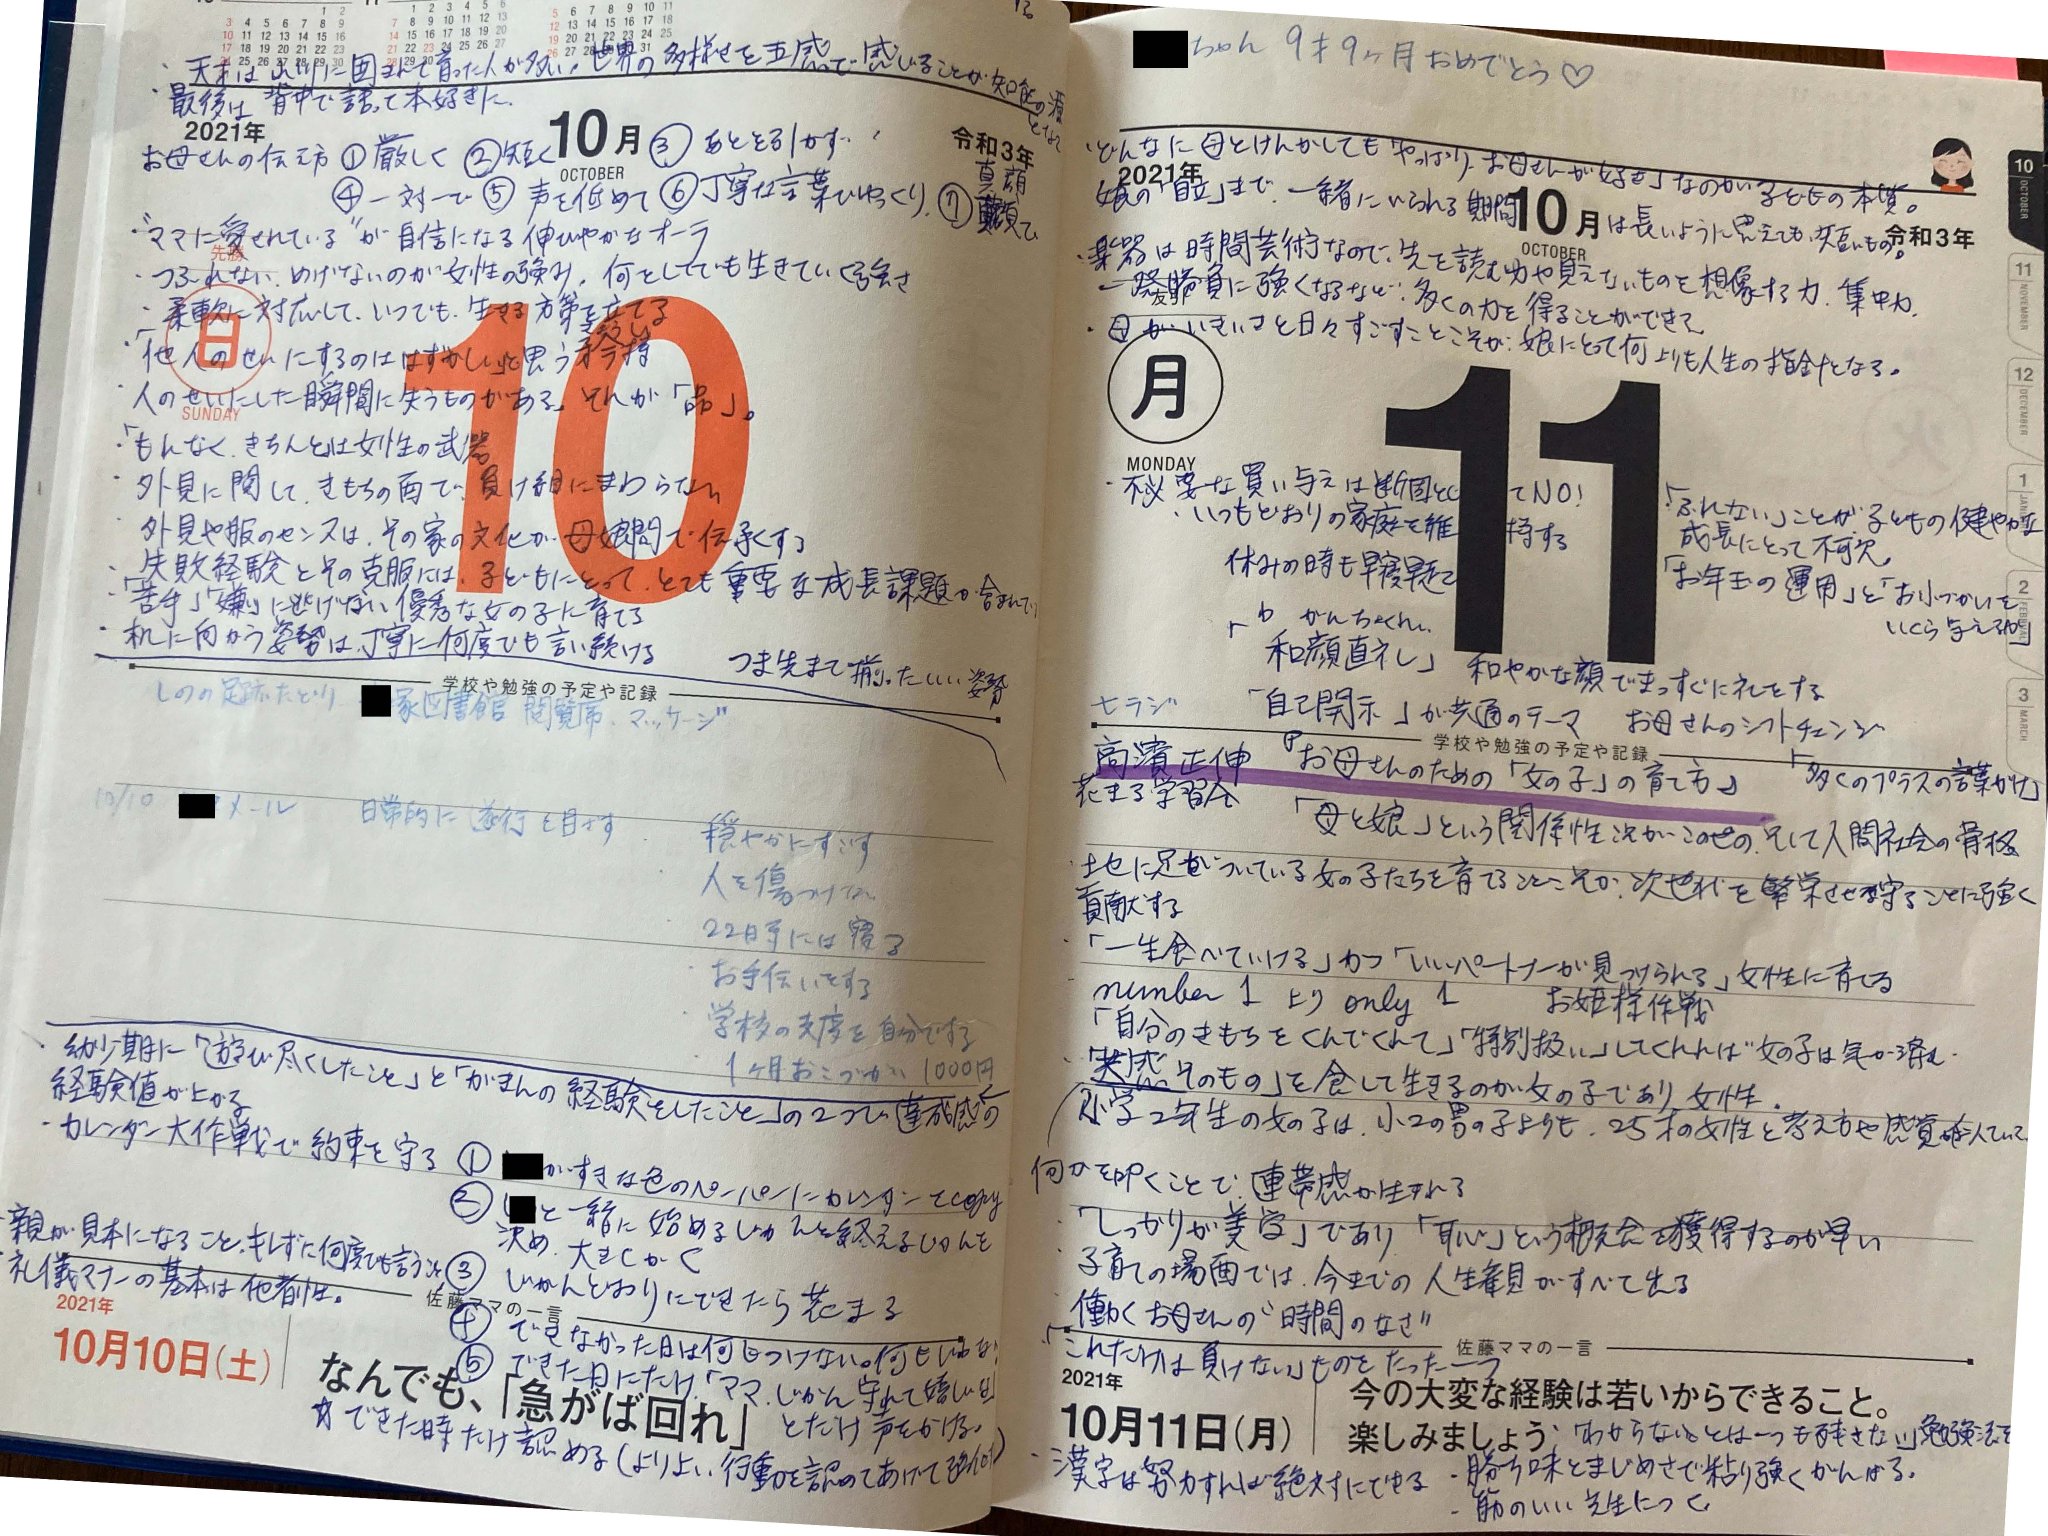 ・天才は に囲まれて育った人が多い。世界の多様せを五感で感じることが知能の源となる
・最後は背中で語って本好きに。
2021年
10月
OCTOBER
令和3年
お母さんの伝え方 ①厳しく ②短く ③あとを引かず
④一対一で ⑤声を低めて ⑥丁寧な言葉でゆっくり、⑦真顔で
真顔
・"ママに愛されている"が自信になる伸びやかなオーラ
先勝
・つぶれない、めげないのが女性の強み。何をしてでも生きていく強さ
・柔軟に対応して、いつでも、生きる方策を立てる
日
SUNDAY
10
・「他人のせいにするのははずかしい」と思う矜持
・人のせいにした瞬間に失うものがある。それが「品」。
・「もんなく、きちんと」は女性の武器
・外見に関して、きもちの面で、負け組にまわらない
外見や服のセンスは、その家の文化が母娘間で伝承する
・失敗経験とその克服には、子どもにとって、とても重要な成長課題が含まれている
・「苦手」「嫌い」に逃げない優秀な女の子に育てる
・机に向かう姿勢は、丁寧に何度でも言い続ける
つま先まで揃ったいい姿勢
学校や勉強の予定や記録
しのの足跡たどり 家図書館 閲覧席、マッケージ
10/10 メール 日常的に遂行を目ざす
・穏やかにすごす
・人を傷つけない
・22時までには寝る
・お手伝いをする
・学校の支度を自分でする
・1ヶ月おこづかい1000円
・幼少期に「遊び尽くしたこと」と「がまんの経験をしたこと」の2つで達成感の
経験値が上がる
・カレンダー大作戦で約束を守る ① がすきな色のペーパーにカレンダーをcopy
② と一緒に始めるじかんと終えるじかんを
決め、大きくかく
・親が見本になること、キレずに何度でも言うこと
③ じかんどおりにできたら花まる
・礼儀マナーの基本は他者性。
佐藤ママの一言
④ できなかった日は何もつけない。何もいわない
⑤ できた日にだけ、「ママ、じかん守れて嬉しいな」
とだけ声をかける。
☆できた時だけ認める(よりよい行動を認めてあげて強化)
2021年
10月10日(土)
なんでも、「急がば回れ」
ちゃん 9才9ヶ月おめでとう♡
・どんなに母とけんかしても「やっぱり、お母さんが好き」なのが子どもの本質。
2021年
10月
OCTOBER
令和3年
娘の「自立」まで、一緒にいられる期間は長いように思えても、短いもの。
・楽器は時間芸術なので、先を読む力や見えないものを想像する力、集中力、
一発勝負に強くなるなど、多くの力を得ることができて
・母がいきいきと日々すごすことこそが、娘にとって何よりも人生の指針となる。
月
MONDAY
11
・不必要な買い与えは断固としてNO!
・いつもどおりの家庭を維持する
休みの時も早寝早起
「ぶれない」ことが、子どもの健やかな
成長にとって不可欠。
「お年玉の運用」と「お小づかいを
いくら与えるか」
わ がんちょくれい
「和顔直礼」 和やかな顔でまっすぐに礼をする
ヒラジ
「自己開示」が共通のテーマ お母さんのシフトチェンジ
学校や勉強の予定や記録
高濱正伸 『お母さんのための「女の子」の育て方』
花まる学習会
「多くのプラスの言葉がけ」
「母と娘」という関係性こそがこの世の、そして人間社会の骨格
・土地に足がついている女の子たちを育てることこそが、次世代を繁栄させ守ることに強く
貢献する
・「一生食べていける」かつ「いいパートナーが見つけられる」女性に育てる
number 1 より only 1 お姫様作戦
・「自分のきもちをくんでくれて」「特別扱い」してくれれば女の子は気が済む
・「共感そのもの」を食して生きるのが女の子であり女性。
小学2年生の女の子は、小2の男の子よりも、25才の女性と考え方や感覚が似ていて
何かを叩くことで、連帯感が生まれる
・「しっかりが美学」であり、「恥」という概念を獲得するのが早い
・子育ての場面では、今までの人生観がすべて出る
・働くお母さんの"時間のなさ"
・「これだけは負けない」ものをたった一つ
佐藤ママの一言
2021年
10月11日(月)
今の大変な経験は若いからできること。
楽しみましょう
・「わからないことは一つも残さない」勉強法を
・漢字は努力すれば絶対にできる
・勝ち味とまじめさで粘り強くがんばる。
・筋のいい先生につく